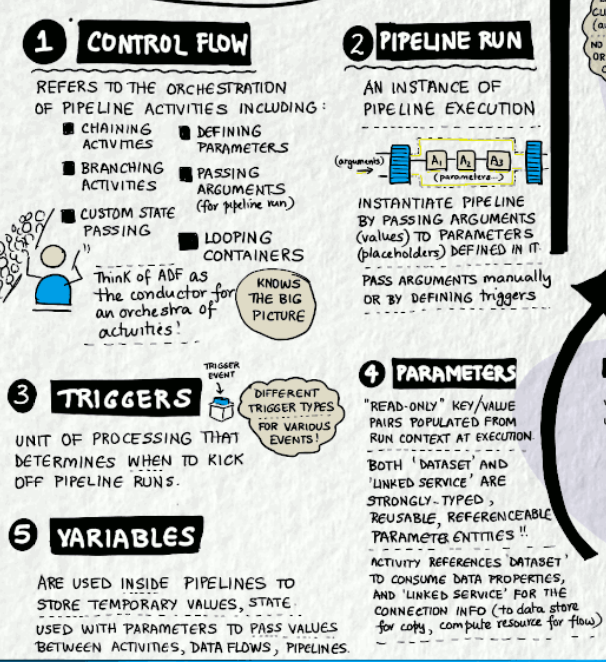 1 CONTROL FLOW
REFERS TO THE ORCHESTRATION
OF PIPELINE ACTIVITIES INCLUDING:
CHAINING
ACTIVITIES
BRANCHING
ACTIVITIES
CUSTOM STATE
PASSING
DEFINING
PARAMETERS
PASSING
ARGUMENTS
(for pipeline run)
LOOPING
CONTAINERS
Think of ADF as
the conductor for
an orchestra of
activities!
KNOWS
THE BIG
PICTURE
2 PIPELINE RUN
AN INSTANCE OF
PIPELINE EXECUTION
(arguments)
A1 A2 A3
(parameters)
INSTANTIATE PIPELINE
BY PASSING ARGUMENTS
(values) TO PARAMETERS
(placeholders) DEFINED IN IT.
PASS ARGUMENTS manually
OR BY DEFINING triggers
3 TRIGGERS
TRIGGER
EVENT
DIFFERENT
TRIGGER TYPES
FOR VARIOUS
EVENTS!
UNIT OF PROCESSING THAT
DETERMINES WHEN TO KICK
OFF PIPELINE RUNS.
4 PARAMETERS
"READ-ONLY" KEY/VALUE
PAIRS POPULATED FROM
RUN CONTEXT AT EXECUTION.
BOTH 'DATASET' AND
'LINKED SERVICE' ARE
STRONGLY-TYPED,
REUSABLE, REFERENCEABLE
PARAMETER ENTITIES !!
ACTIVITY REFERENCES 'DATASET'
TO CONSUME DATA PROPERTIES,
AND 'LINKED SERVICE' FOR THE
CONNECTION INFO (to data store
for copy, compute resource for flow)
5 VARIABLES
ARE USED INSIDE PIPELINES TO
STORE TEMPORARY VALUES, STATE.
USED WITH PARAMETERS TO PASS VALUES
BETWEEN ACTIVITIES, DATA FLOWS, PIPELINES.
NO
OR